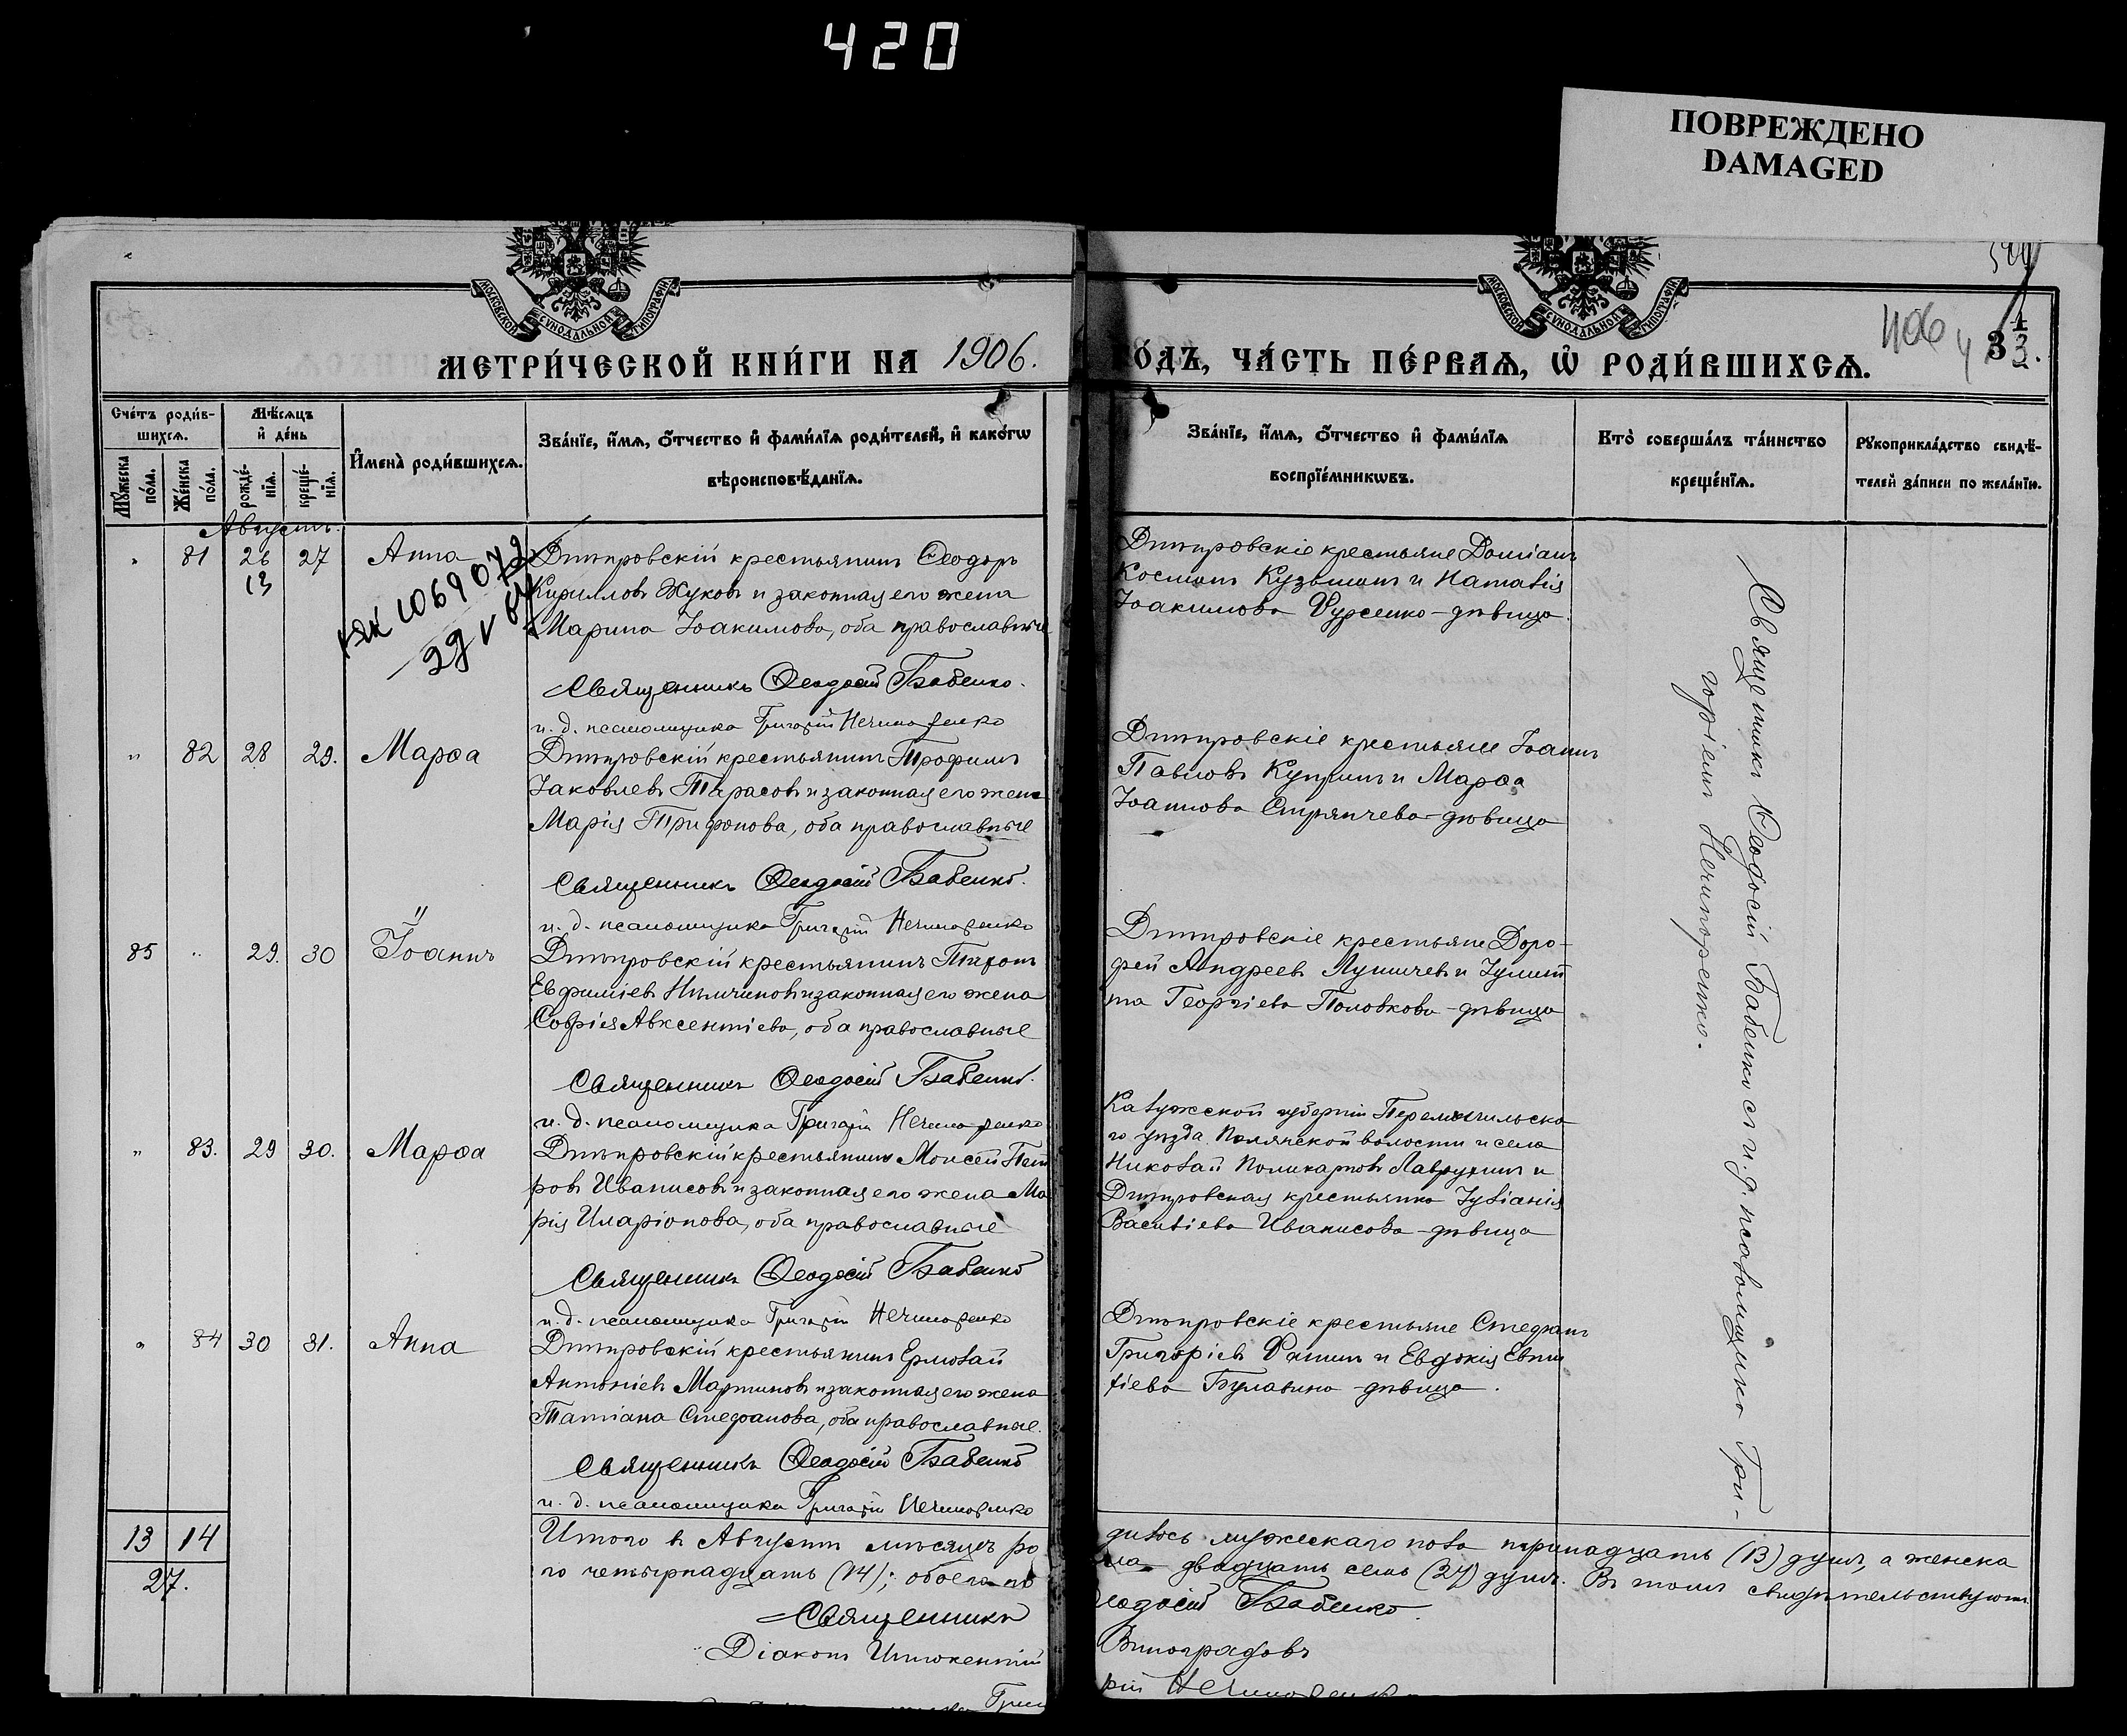 420
ПОВРЕЖДЕНО
DAMAGED
МОСКОВСКОЙ СУНОДАЛЬНОЙ ТИПОГРАФІИ
МОСКОВСКОЙ СУНОДАЛЬНОЙ ТИПОГРАФІИ
406
МЕТРИ́ЧЕСКОЙ КНИ́ГИ НА 1906.
О́ДЪ, ЧА́СТЬ ПЕ́РВАѦ, Ѡ҆ РОДИ́ВШИХСѦ.
Сче́тъ роди́в-
шихсѧ.
Мѣ́сѧцъ
и҆ де́нь
Мꙋ́жеска
по́ла.
Же́нска
по́ла.
рожде́-
нїѧ.
креще́-
нїѧ.
И҆мена̀ роди́вшихсѧ.
Зва́нїе, и҆́мѧ, ѻ҆́тчество и҆ фами́лїѧ роди́телей, и҆ како́гѡ
вѣроисповѣ́данїѧ.
Зва́нїе, и҆́мѧ, ѻ҆́тчество и҆ фами́лїѧ
воспрїе́мникѡвъ.
Кто̀ соверша́лъ та́инство
креще́нїѧ.
Рꙋкоприкла́дство свидѣ́-
телей за́писи по жела́нїю.
Августъ.
" 81 26 27 Анна
13
1069072
Днѣпровскій крестьянинъ Ѳеодоръ
Кирилловъ Жуковъ и законная его жена
Марина Іоакимова, оба православные
Священникъ Ѳеодосій Бабенко.
и. д. псаломщика Григорій Нечипоренко
Днѣпровскіе крестьяне Доміанъ
Косминъ Кузьминъ и Наталія
Іоакимова Фурсенко - дѣвица.
" 82 28 29. Марѳа
Днѣпровскій крестьянинъ Трофимъ
Іаковлевъ Тарасовъ и законная его жена
Марія Трифонова, оба православные
Священникъ Ѳеодосій Бабенко.
и. д. псаломщика Григорій Нечипоренко
Днѣпровскіе крестьяне Іоаннъ
Павловъ Купринъ и Марѳа
Іоаннова Стряпчева - дѣвица
85 " 29. 30 Іоаннъ
Днѣпровскій крестьянинъ Пахомъ
Евфиміевъ и законная его жена
Софія Авксентіева, оба православные
Священникъ Ѳеодосій Бабенко.
и. д. псаломщика Григорій Нечипоренко
Днѣпровскіе крестьяне Доро-
фей Андреевъ и Іулит
та Георгіева Половкова - дѣвица
" 83. 29 30. Марѳа
Днѣпровскій крестьянинъ Моисей Пет
ровъ Иванисовъ и законная его жена Ма
рія Иларіонова, оба православные
Священникъ Ѳеодосій Бабенко
и. д. псаломщика Григорій Нечипоренко
Калужской губерніи Перемышльска
го уѣзда волости и села
Николай Поликарповъ Лаврухинъ и
Днѣпровская крестьянка Іуліанія
Василіева Иванисова - дѣвица
" 84 30 31. Анна
Днѣпровскій крестьянинъ Ермолай
Антоніевъ Мартиновъ и законная его жена
Татіана Стефанова, оба православные.
Священникъ Ѳеодосій Бабенко
и. д. псаломщика Григорій Нечипоренко
Днѣпровскіе крестьяне Стефанъ
Григоріевъ и Евдокія
Булавина - дѣвица.
Священникъ Ѳеодосій Бабенко съ и. д. псаломщика Гри-
горіемъ Нечипоренко.
13 14
27.
Итого въ Августѣ мѣсяцѣ ро
дилось мужескаго пола тринадцать (13) душъ, а женска
го четырнадцать (14); обоего по
ла двадцать семь (27) душъ. Въ томъ свидѣтельствуютъ
Священникъ
Ѳеодосій Бабенко.
Діаконъ Иннокентій
Виноградовъ
Григо
рій Нечипоренко